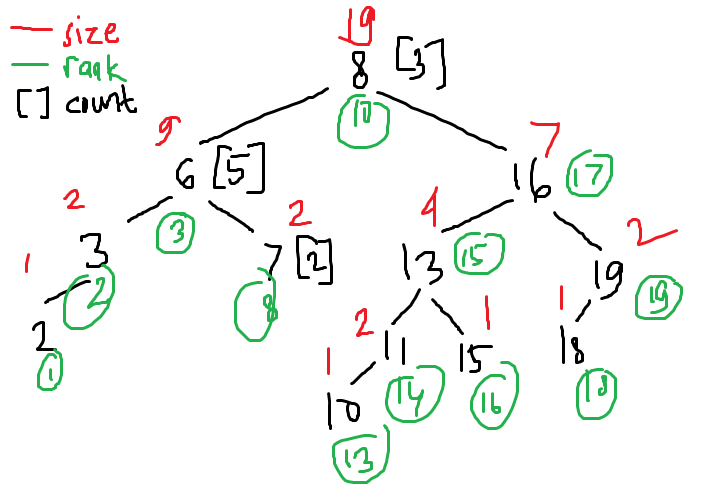 size
rank
[ ] count
19
8 [3]
10
9
6 [5]
3
7
16 17
2
3
2
2
7 [2]
8
4
13 15
2
19
19
1
2
1
2
11
14
1
15
16
1
18
18
1
10
13